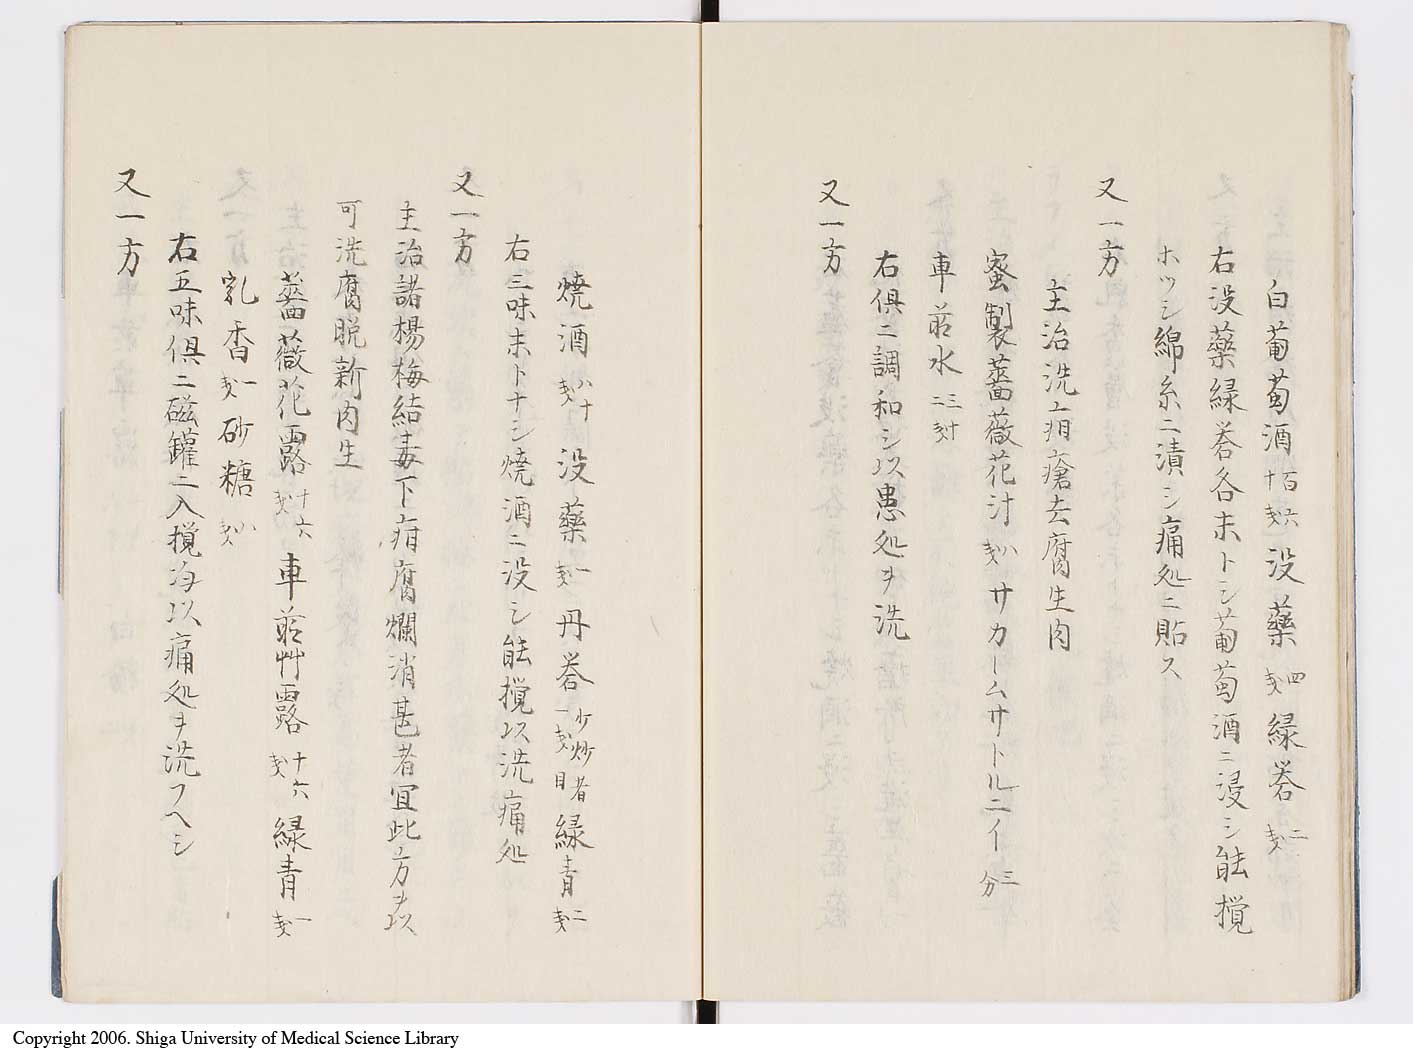 白葡萄酒百六十戔 没藥四戔 緑礬二戔
右没藥緑礬各末トシ葡萄酒ニ浸シ能攪
ホツシ綿糸ニ漬シ痛処ニ貼ス
又一方
主治洗疳瘡去腐生肉
蜜製薔薇花汁八戔 サカームサトルニイ三分
車前水三十二戔
右倶ニ調和シ以患処ヲ洗
又一方
焼酒八十戔 没藥一戔 丹礬少炒者一戔目 緑青二戔
右三味末トナシ焼酒ニ没シ能攪以洗痛処
又一方
主治諸楊梅結毒下疳腐爛消甚者宜此方ヲ以
可洗腐脱新肉生
薔薇花露十六戔 車前艸露十六戔 緑青一戔
乳香一戔 砂糖八戔
右五味倶ニ磁罐ニ入攪海以痛処ヲ洗フヘシ
又一方
Copyright 2006. Shiga University of Medical Science Library